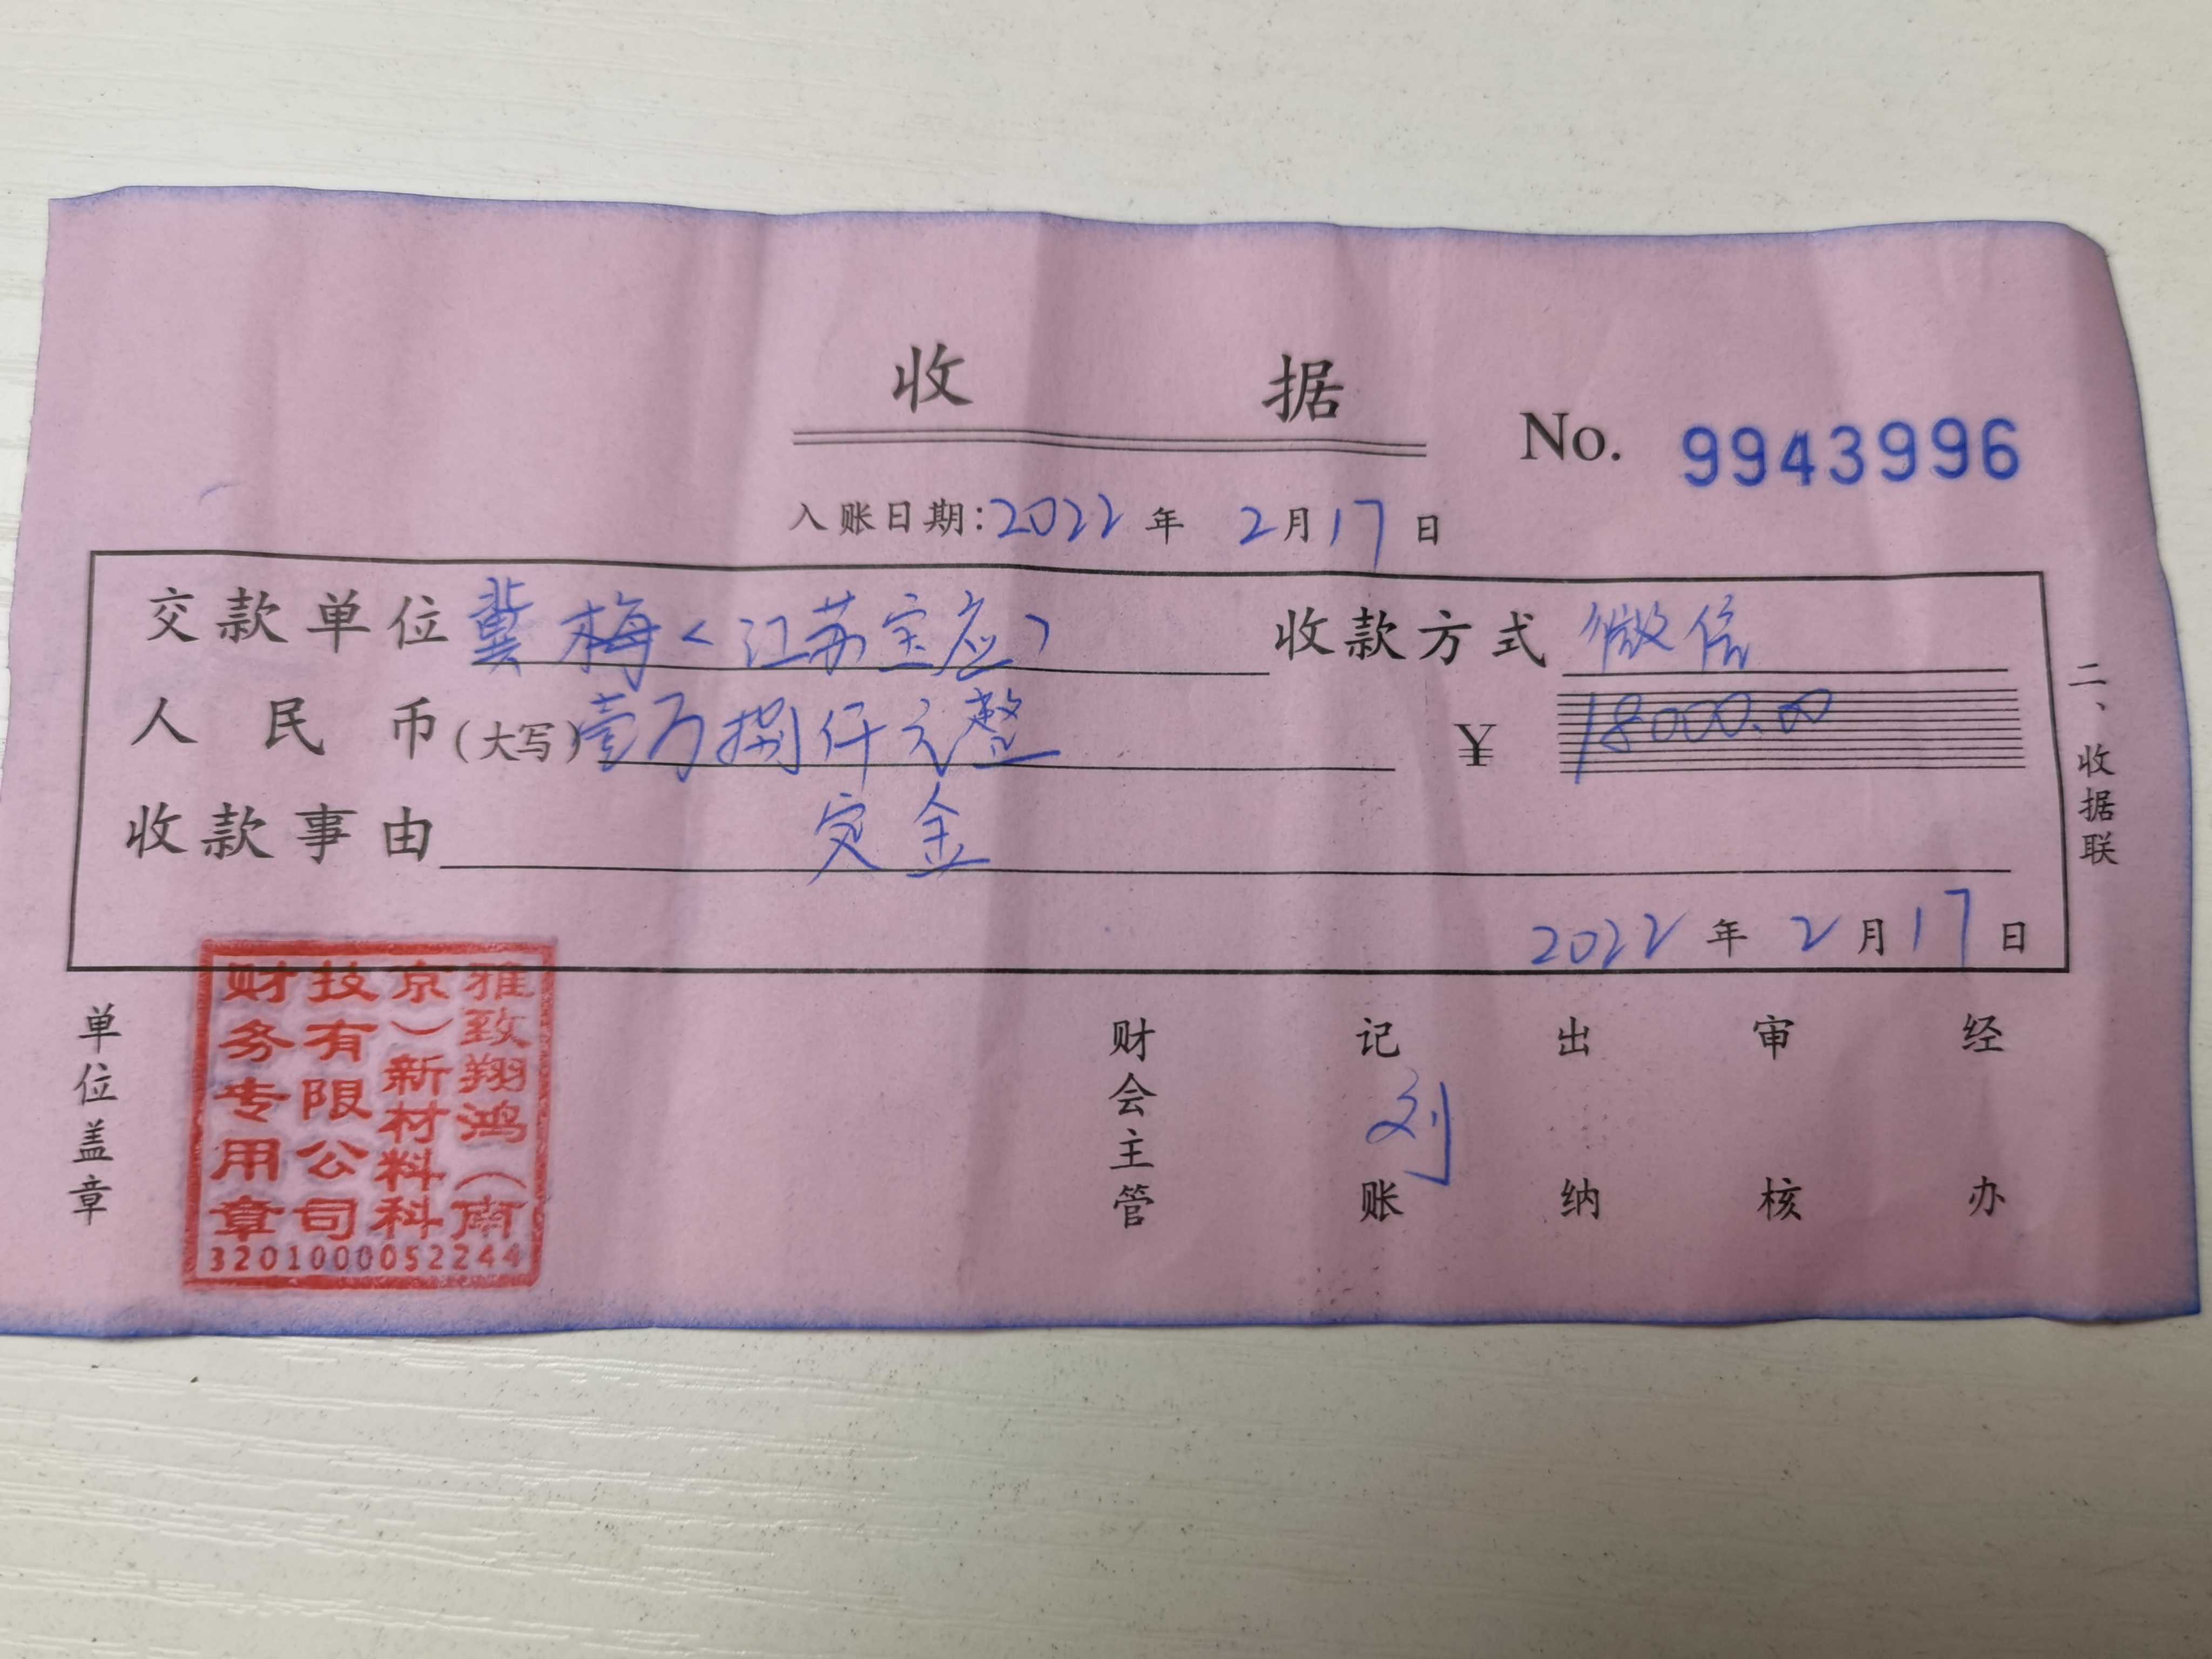 收据
No. 9943996
入账日期：2022年2月17日
交款单位 冀梅（江苏宝应） 收款方式 微信
人民币(大写) 壹万捌仟元整 ¥ 18000.00
收款事由 定金
2022年2月17日
二、收据联
单位盖章
雅致翔鸿（南
京）新材料科
技有限公司
财务专用章
3201000052244
财会主管 记账 刘 出纳 审核 经办